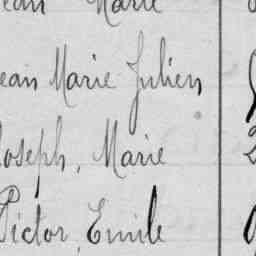 ean Marie
ean Marie Julien
Joseph, Marie
Victor, Emile